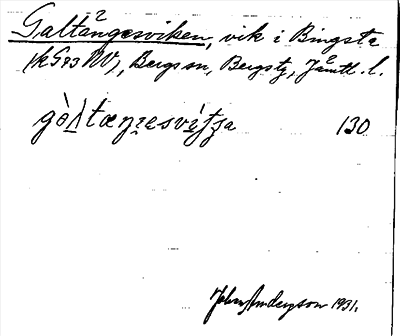 Galtångesviken, vik i Bingsta
(k G 83 NV), Bergs sn, Bergs tg, Jämtl. l.
gòltæŋɛsvítʃa 130
John Anderzon 1931.